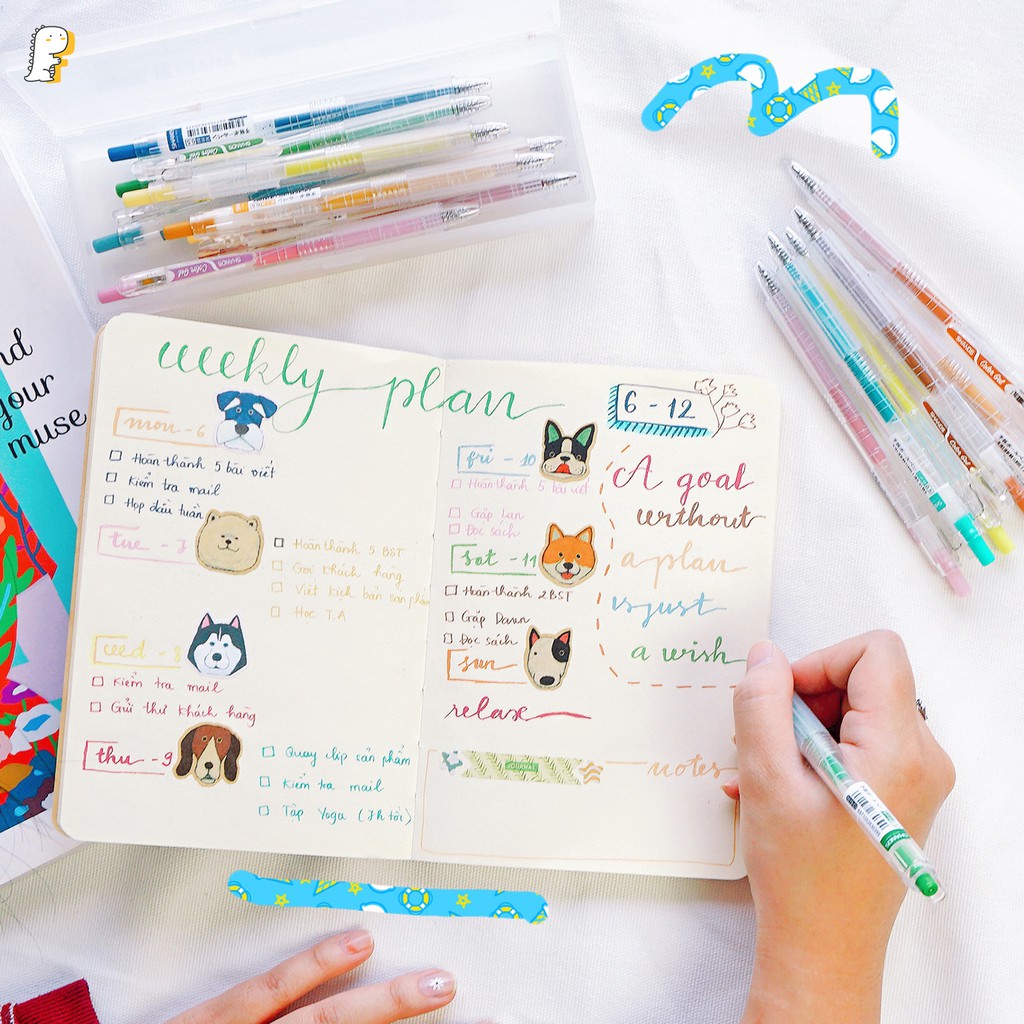 weekly plan
mon - 6
Hoàn thành 5 bài viết
Kiểm tra mail
Họp đầu tuần
tue - 7
Hoàn thành 5 BST
Gọi khách hàng
Viết kịch bản sản phẩm
Học T.A
wed - 8
Kiểm tra mail
Gửi thư khách hàng
thu - 9
Quay clip sản phẩm
Kiểm tra mail
Tập Yoga (7h tối)
fri - 10
Hoàn thành 5 bài viết
Gặp Lan
Đọc sách
sat - 11
Hoàn thành 2 BST
Gặp Dawn
Đọc sách
sun
relax
6 - 12
A goal
without
a plan
is just
a wish
JOURNAL
notes
your
muse
SHANDS
Color Gel
SHANDS
Color Gel
SHANDS
Color Gel
Color Gel